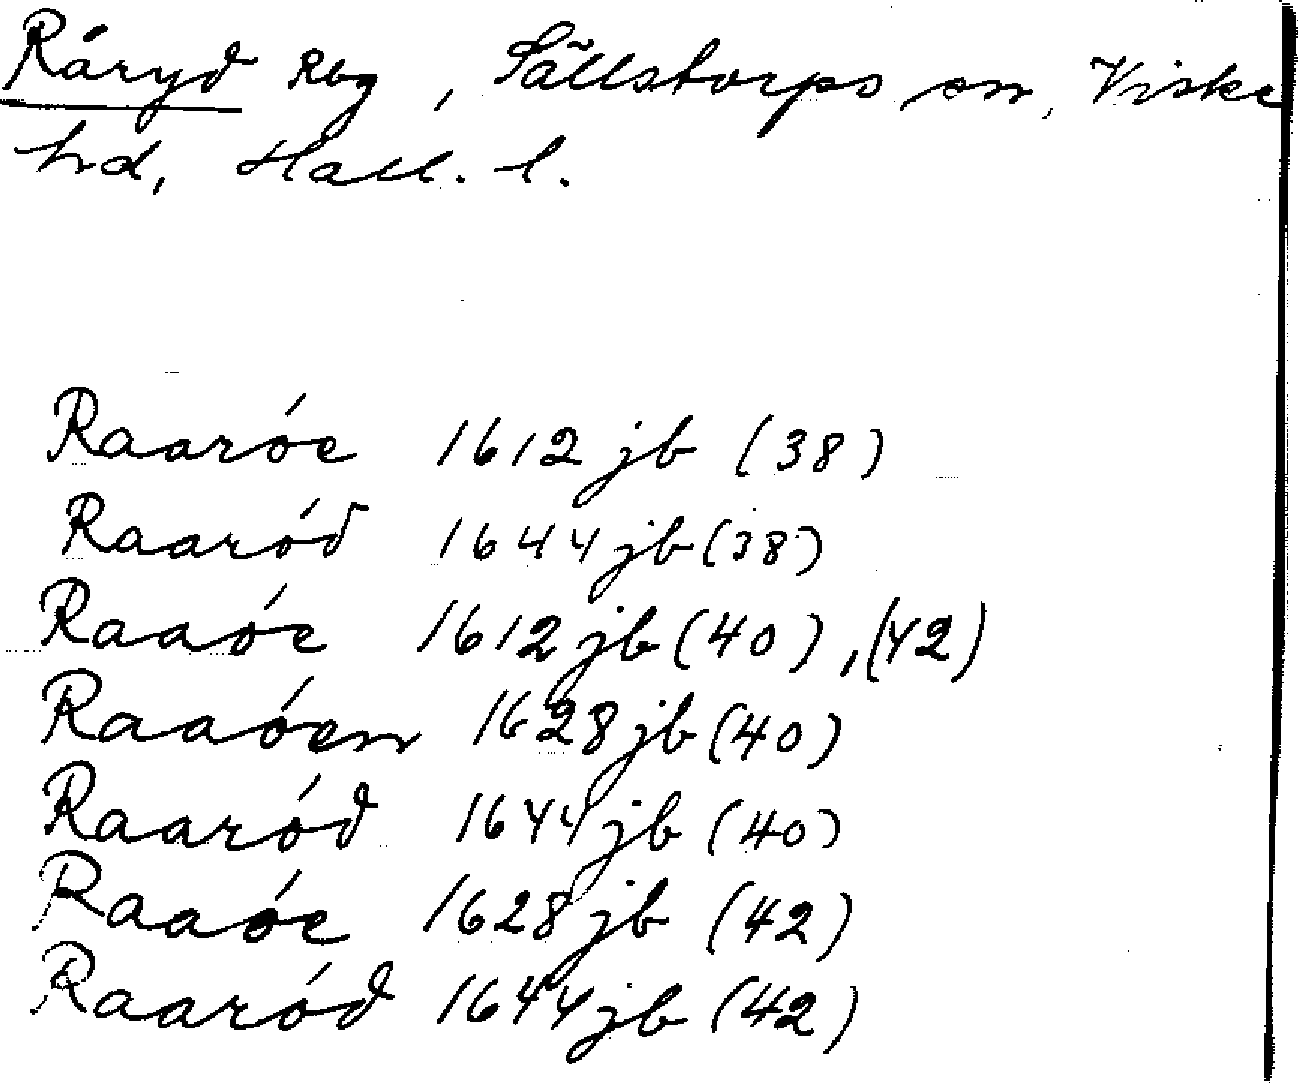 Råryd Rbg, Sällstorps sn, Viske
hd, Hall. l.
Raaróe 1612 jb (38)
Raaród 1644 jb (38)
Raaóe 1612 jb (40), (42)
Raaóen 1628 jb (40)
Raaród 1644 jb (40)
Raaóe 1628 jb (42)
Raaród 1644 jb (42)